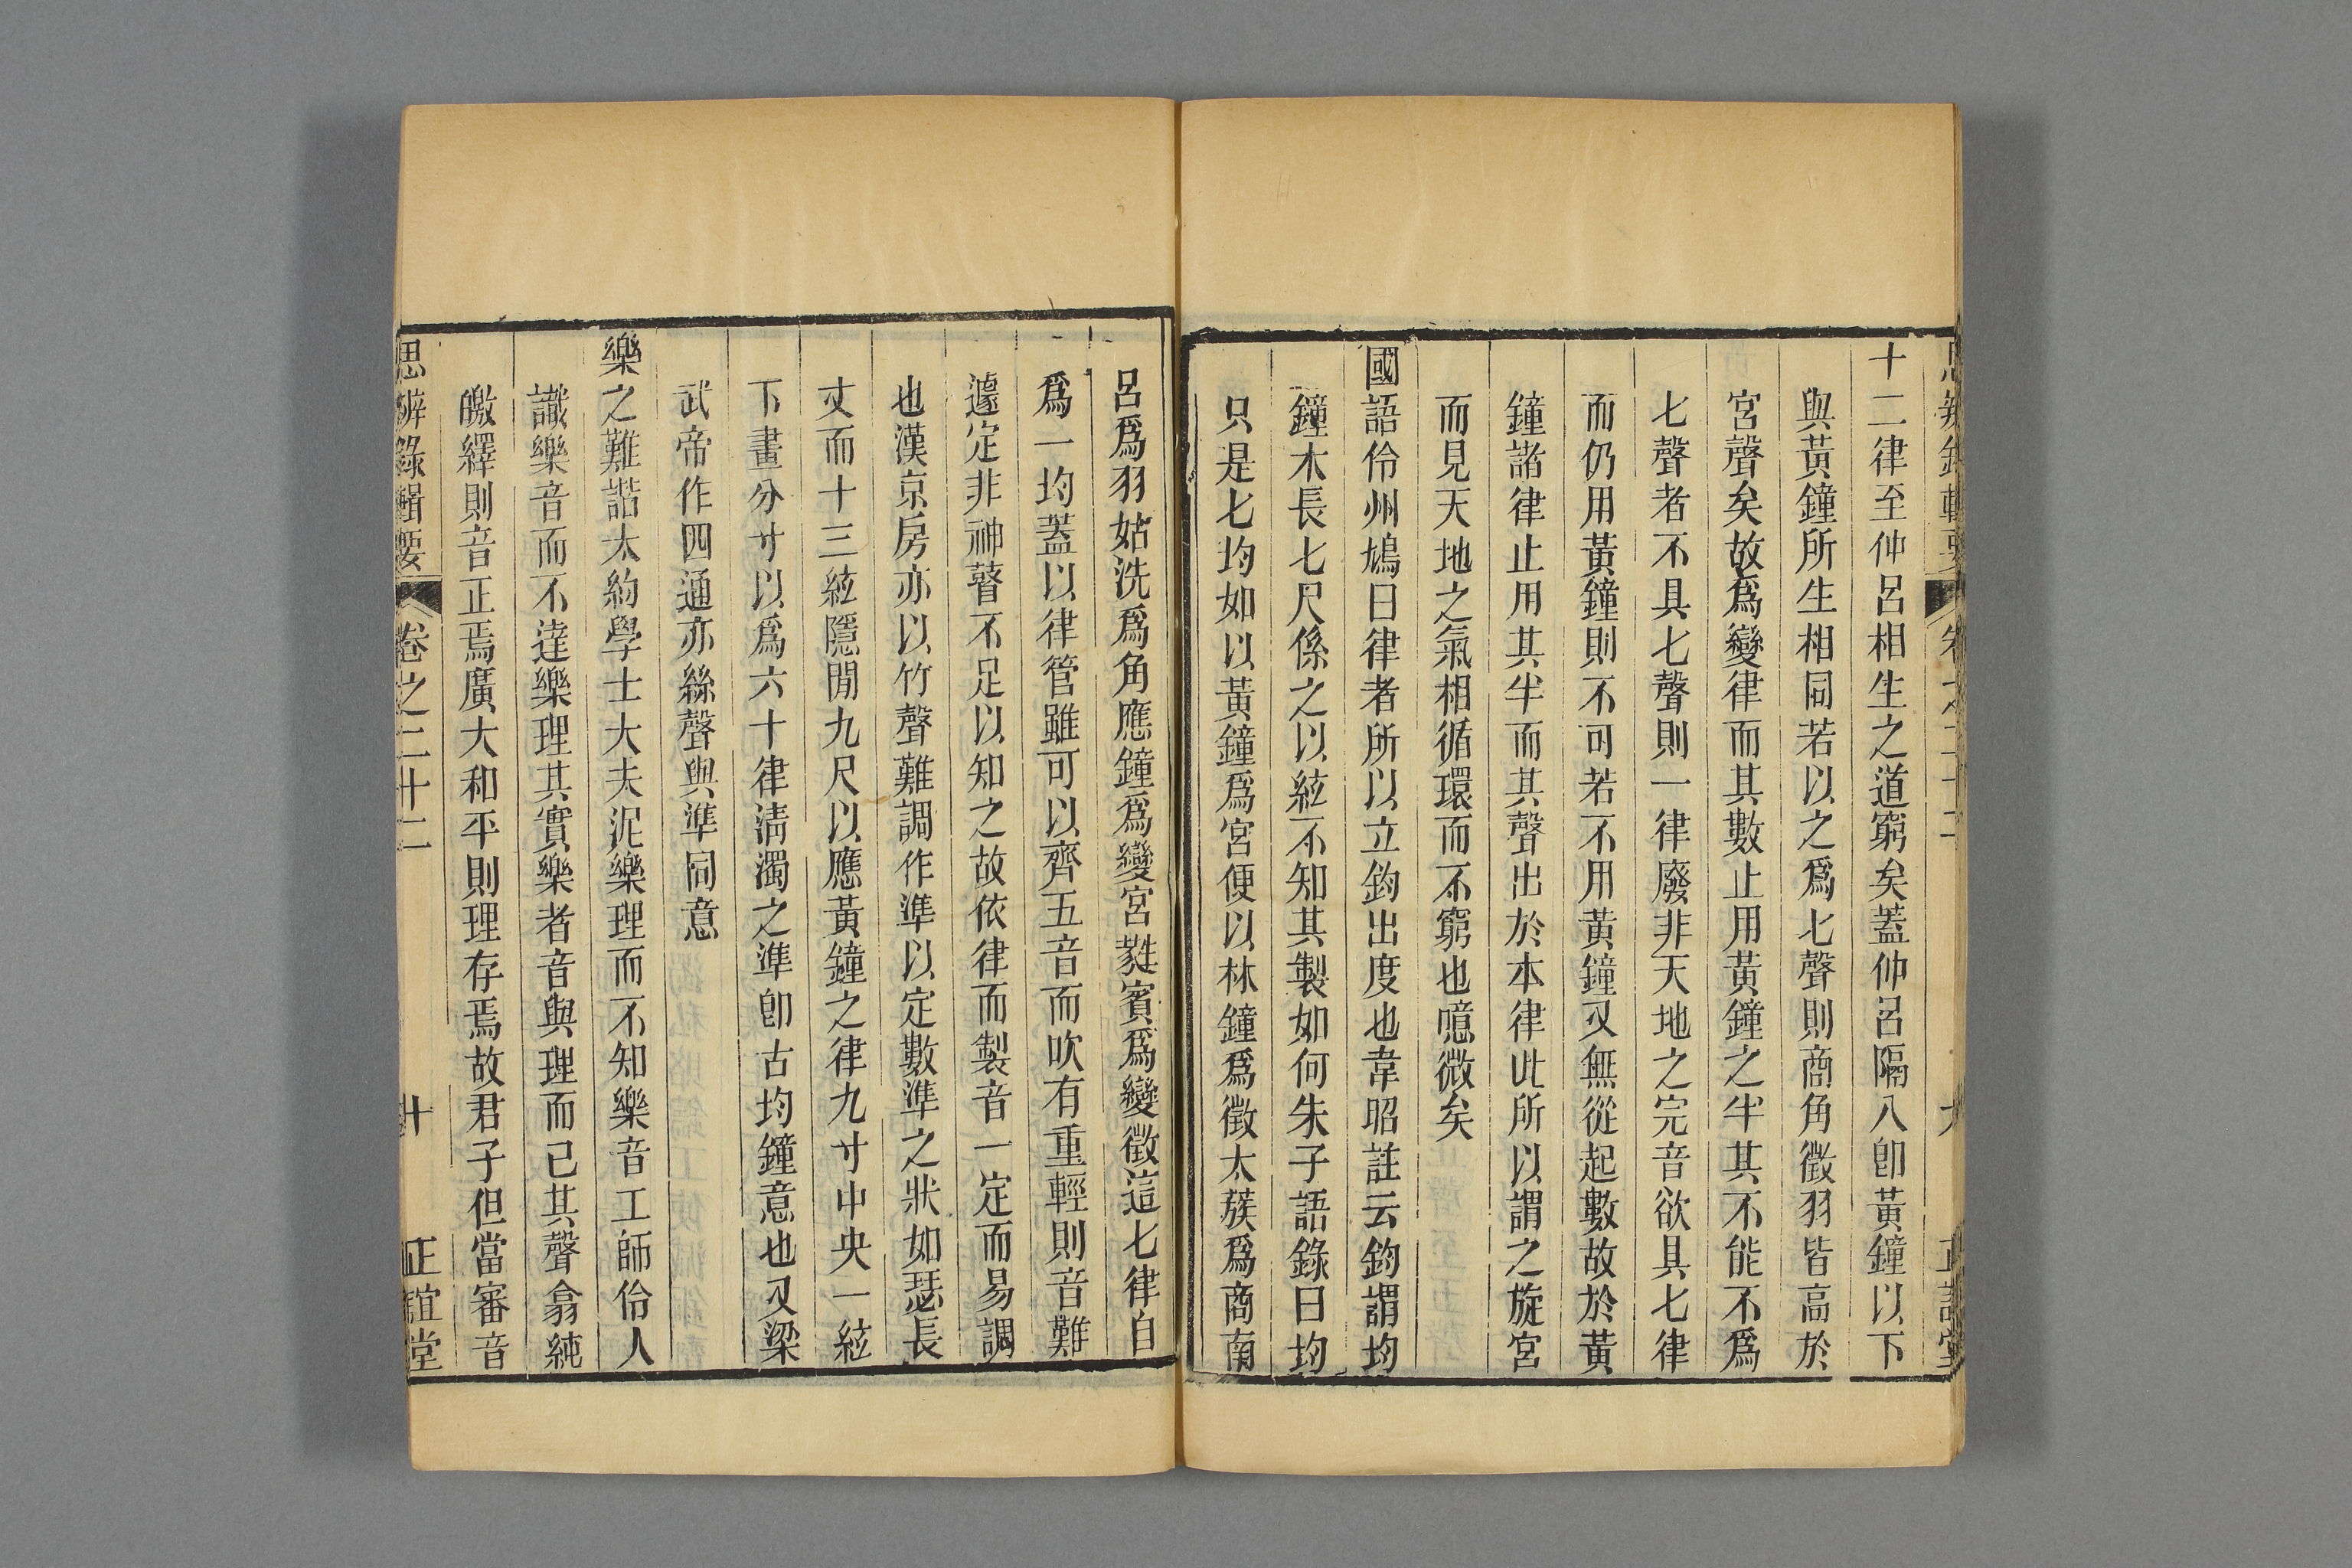 十二律至仲呂相生之道窮矣蓋仲呂隔八卽黃鐘以下
與黃鐘所生相同若以之爲七聲則商角徵羽皆高於
宮聲矣故爲變律而其數止用黃鐘之半其不能不爲
七聲者不具七聲則一律廢非天地之完音欲具七律
而仍用黃鐘則不可若不用黃鐘又無從起數故於黃
鐘諸律止用其半而其聲出於本律此所以謂之旋宮
而見天地之氣相循環而不窮也噫微矣
國語伶州鳩曰律者所以立鈞出度也韋昭註云鈞謂均
鐘木長七尺係之以絃不知其製如何朱子語錄曰均
只是七均如以黃鐘爲宮便以林鐘爲徵太蔟爲商南
呂爲羽姑洗爲角應鐘爲變宮蕤賓爲變徵這七律自
爲一均蓋以律管雖可以齊五音而吹有重輕則音難
遽定非神瞽不足以知之故依律而製音一定而易調
也漢京房亦以竹聲難調作準以定數準之狀如瑟長
丈而十三絃隱閒九尺以應黃鐘之律九寸中央一絃
下畫分寸以爲六十律淸濁之準卽古均鐘意也又梁
武帝作四通亦絲聲與準同意
樂之難諧大約學士大夫泥樂理而不知樂音工師伶人
識樂音而不達樂理其實樂者音與理而已其聲翕純
皦繹則音正焉廣大和平則理存焉故君子但當審音
思辨錄輯要 卷之二十二 十 正誼堂